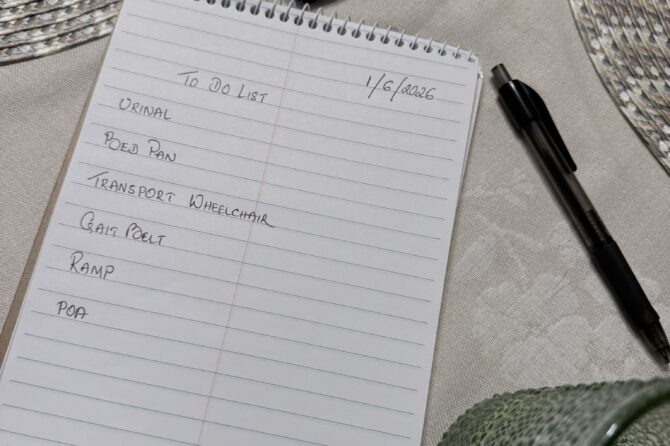 To Do List 1/6/2026
Urinal
Bed Pan
Transport Wheelchair
Gait Belt
Ramp
POA